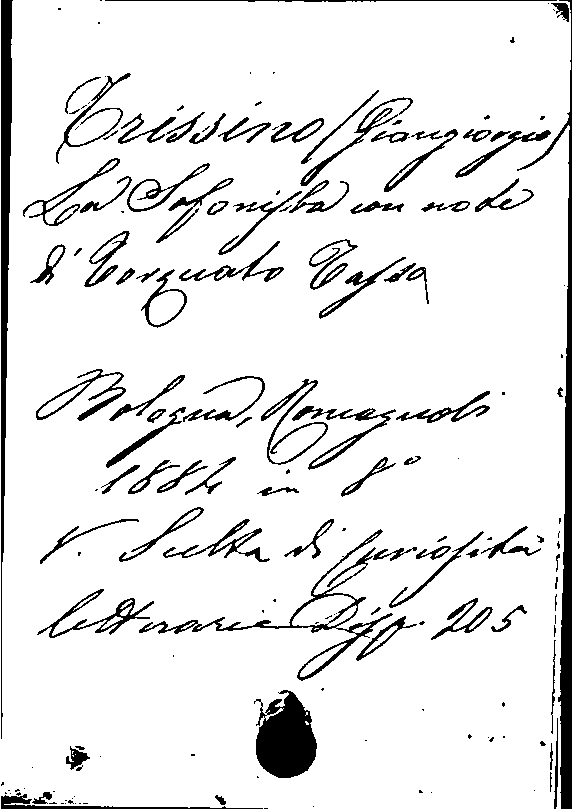 Trissino (Giangiorgio)
La Sofonisba con note
di Torquato Tasso
Bologna, Romagnoli
1884 in 8°
V. Scelta di curiosità
letterarie Disp. 205